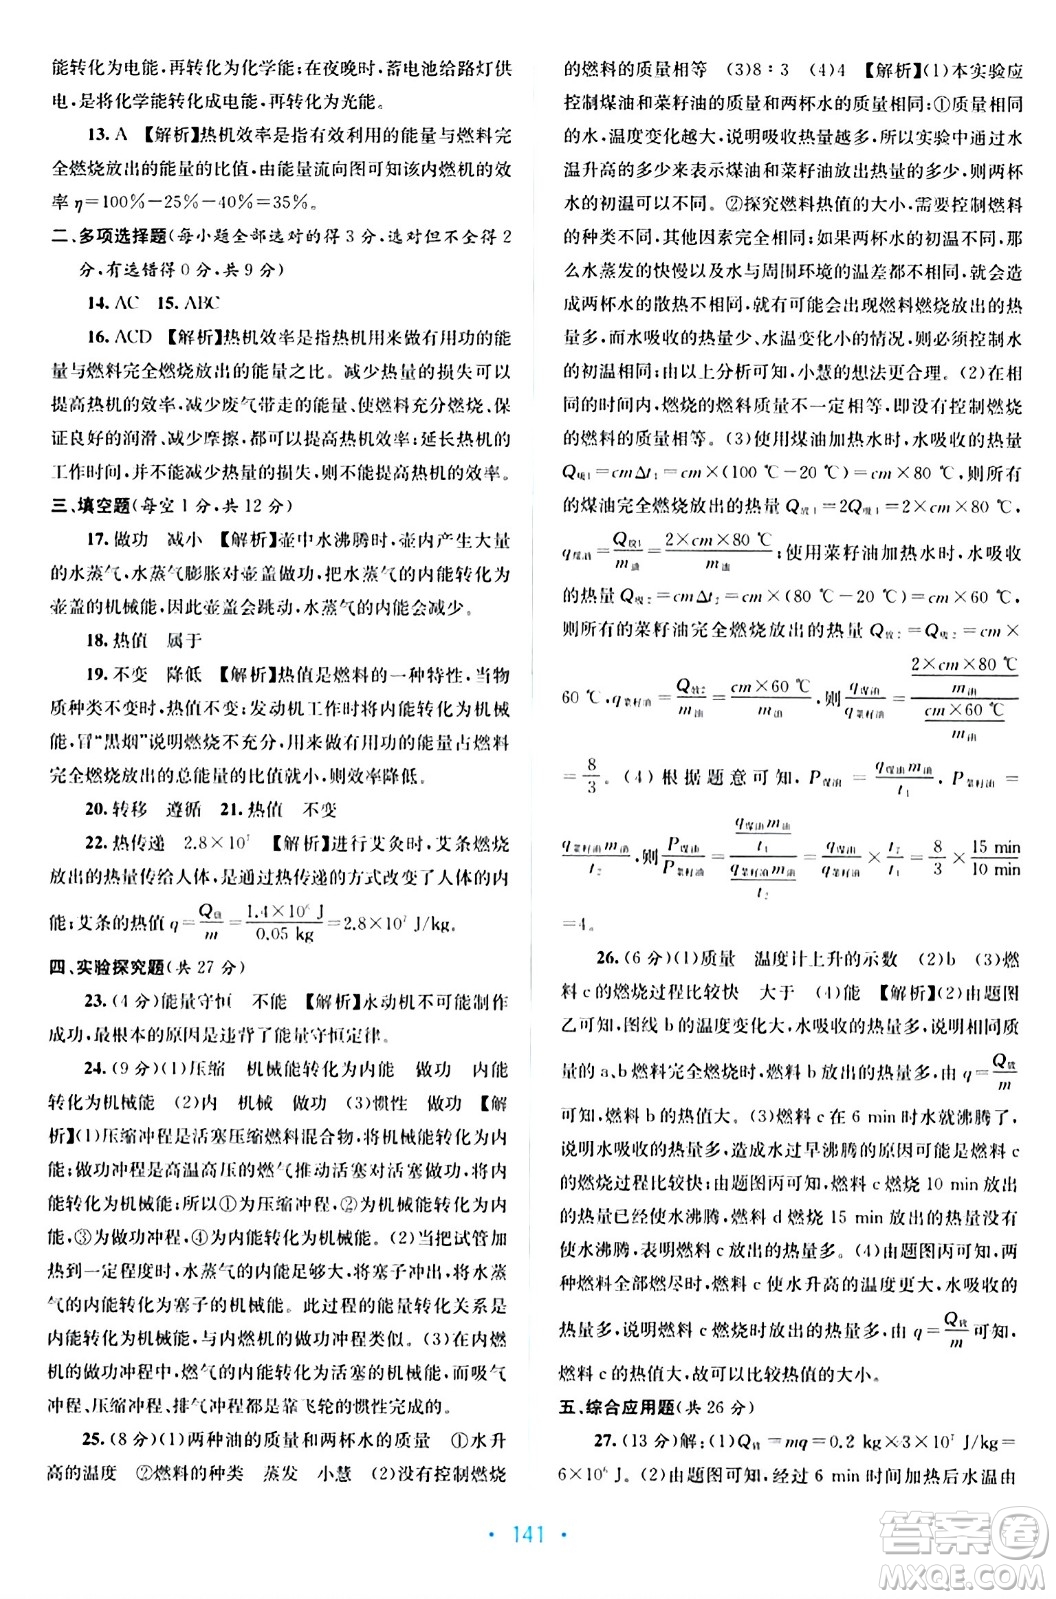 能转化为电能,再转化为化学能;在夜晚时,蓄电池给路灯供
电,是将化学能转化成电能,再转化为光能。
13. A 【解析】热机效率是指有效利用的能量与燃料完
全燃烧放出的能量的比值,由能量流向图可知该内燃机的效
率 η=100%-25%-40%=35%。
二、多项选择题(每小题全部选对的得 3 分,选对但不全得 2
分,有选错得 0 分,共 9 分)
14. AC 15. ABC
16. ACD 【解析】热机效率是指热机用来做有用功的能
量与燃料完全燃烧放出的能量之比。减少热量的损失可以
提高热机的效率,减少废气带走的能量、使燃料充分燃烧、保
证良好的润滑、减少摩擦,都可以提高热机效率;延长热机的
工作时间,并不能减少热量的损失,则不能提高热机的效率。
三、填空题(每空 1 分,共 12 分)
17. 做功 减小 【解析】壶中水沸腾时,壶内产生大量
的水蒸气,水蒸气膨胀对壶盖做功,水蒸气的内能转化为
壶盖的机械能,因此壶盖会跳动,水蒸气的内能会减少。
18. 热值 属于
19. 不变 降低 【解析】热值是燃料的一种特性,当物
质种类不变时,热值不变;发动机工作时将内能转化为机械
能,冒“黑烟”说明燃烧不充分,做有用功的能量占燃料
完全燃烧放出的总能量的比值就小,则效率降低。
20. 转移 遵循 21. 热值 不变
22. 热传递 2.8×10⁷ 【解析】进行艾灸时,艾条燃烧
放出的热量传给人体,是通过热传递的方式改变了人体的内
能;艾条的热值 q=Q放/m=1.4×10⁶ J/0.05 kg=2.8×10⁷ J/kg。
四、实验探究题(共 27 分)
23. (4 分)能量守恒 不能 【解析】水动机不可能制作
成功,最根本的原因是违背了能量守恒定律。
24. (9 分)(1)压缩 机械能转化为内能 做功 内能
转化为机械能 (2)内 机械 做功 (3)惯性 做功 【解
析】(1)压缩冲程是活塞压缩燃料混合物,机械能转化为内
能;做功冲程是高温高压的燃气推动活塞对活塞做功,将内
能转化为机械能;所以①为压缩冲程,②为机械能转化为内
能,③为做功冲程,④为内能转化为机械能。(2)当把试管加
热到一定程度时,水蒸气的内能足够大,将塞子冲出,水蒸气
的内能转化为塞子的机械能。此过程的能量转化关系是
内能转化为机械能,与内燃机的做功冲程类似。(3)在内燃
机的做功冲程中,燃气的内能转化为活塞的机械能,而吸气
冲程、压缩冲程、排气冲程是靠飞轮的惯性完成的。
25. (8 分)(1)两种油的质量和两杯水的质量 ①水升
高的温度 ②燃料的种类 蒸发 小慧 (2)没有控制燃烧
的燃料的质量相等 (3)8∶3 (4)4 【解析】(1)本实验应
控制煤油和菜籽油的质量和两杯水的质量相同;①质量相同
的水,温度变化越大,说明吸收热量越多,所以实验中用水
温升高的多少来表示煤油和菜籽油放出热量的多少,则两杯
水的初温可以不同。②探究燃料热值的大小,需要控制燃料
的种类不同,其他因素完全相同;如果两杯水的初温不同,那
么水蒸发的快慢以及水与周围环境的温差都不相同,就会造
成两杯水的散热不相同,就有可能出现燃料燃烧放出的热
量多,而水吸收的热量少、水温变化小的情况,则必须控制水
的初温相同;由以上分析可知,小慧的想法更合理。(2)在相
同的时间内,燃烧的燃料质量不一定相等,即没有控制燃烧
的燃料的质量相等。(3)使用煤油加热水时,水吸收的热量
Q吸1=cmΔt1=cm×(100 ℃-20 ℃)=cm×80 ℃,则所有
的煤油完全燃烧放出的热量 Q放1=2Q吸1=2×cm×80 ℃,
q煤油=Q放1/m油=2×cm×80 ℃/m油;使用菜籽油加热水时,水吸收
的热量 Q吸2=cmΔt2=cm×(80 ℃-20 ℃)=cm×60 ℃,
则所有的菜籽油完全燃烧放出的热量 Q放2=Q吸2=cm×
60 ℃,q菜籽油=Q放2/m油=cm×60 ℃/m油,则 q煤油/q菜籽油=(2×cm×80 ℃/m油)/(cm×60 ℃/m油)
=8/3。(4)根据题意可知,P煤油=q煤油m油/t1,P菜籽油=
q菜籽油m油/t2,则P煤油/P菜籽油=(q煤油m油/t1)/(q菜籽油m油/t2)=q煤油/q菜籽油×t2/t1=8/3×15 min/10 min
=4。
26. (6 分)(1)质量 温度计上升的示数 (2)b (3)燃
料 c 的燃烧过程比较快 大于 (4)能 【解析】(2)由题图
乙可知,图线 b 的温度变化大,水吸收的热量多,则相同质
量的 a、b 燃料完全燃烧时,燃料 b 放出的热量多,由 q=Q放/m
可知,燃料 b 的热值大。(3)燃料 c 在 6 min 时水就沸腾了,
说明水吸收的热量多,造成水过早沸腾的原因可能是燃料 c
的燃烧过程比较快;由题图丙可知,燃料 c 燃烧 10 min 放出
的热量已经使水沸腾,燃料 d 燃烧 15 min 放出的热量没有
使水沸腾,表明燃料 c 放出的热量多。(4)由题图丙可知,两
种燃料全部燃尽时,燃料 c 使水升高的温度大,水吸收的
热量多,说明燃料 c 燃烧时放出的热量多,由 q=Q放/m可知,
燃料 c 的热值大,故可以比较热值的大小。
五、综合应用题(共 26 分)
27. (13 分)解:(1)Q放=mq=0.2 kg×3×10⁷ J/kg=
6×10⁶ J。(2)由题图可知,经过 6 min 时间加热后水温由
• 141 •
答案圈
MXQE.COM